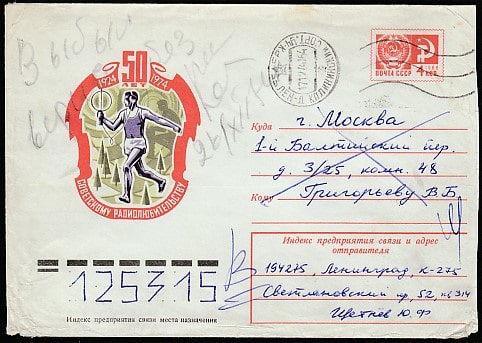 Выбыл
без
26/XII
50
ЛЕТ
1924 1974
СОВЕТСКОМУ РАДИОЛЮБИТЕЛЬСТВУ
ПОЧТА СССР
4 КОП.
Куда г. Москва
1-й Балтийский пер.
д. 3/25, комн. 48
Кому Григорьеву В.Б.
Индекс предприятия связи и адрес
отправителя
194275, Ленинград, К-275
Светлановский пр, 52, кв 314
Щетнев Ю.Ф
125315
Индекс предприятия связи места назначения